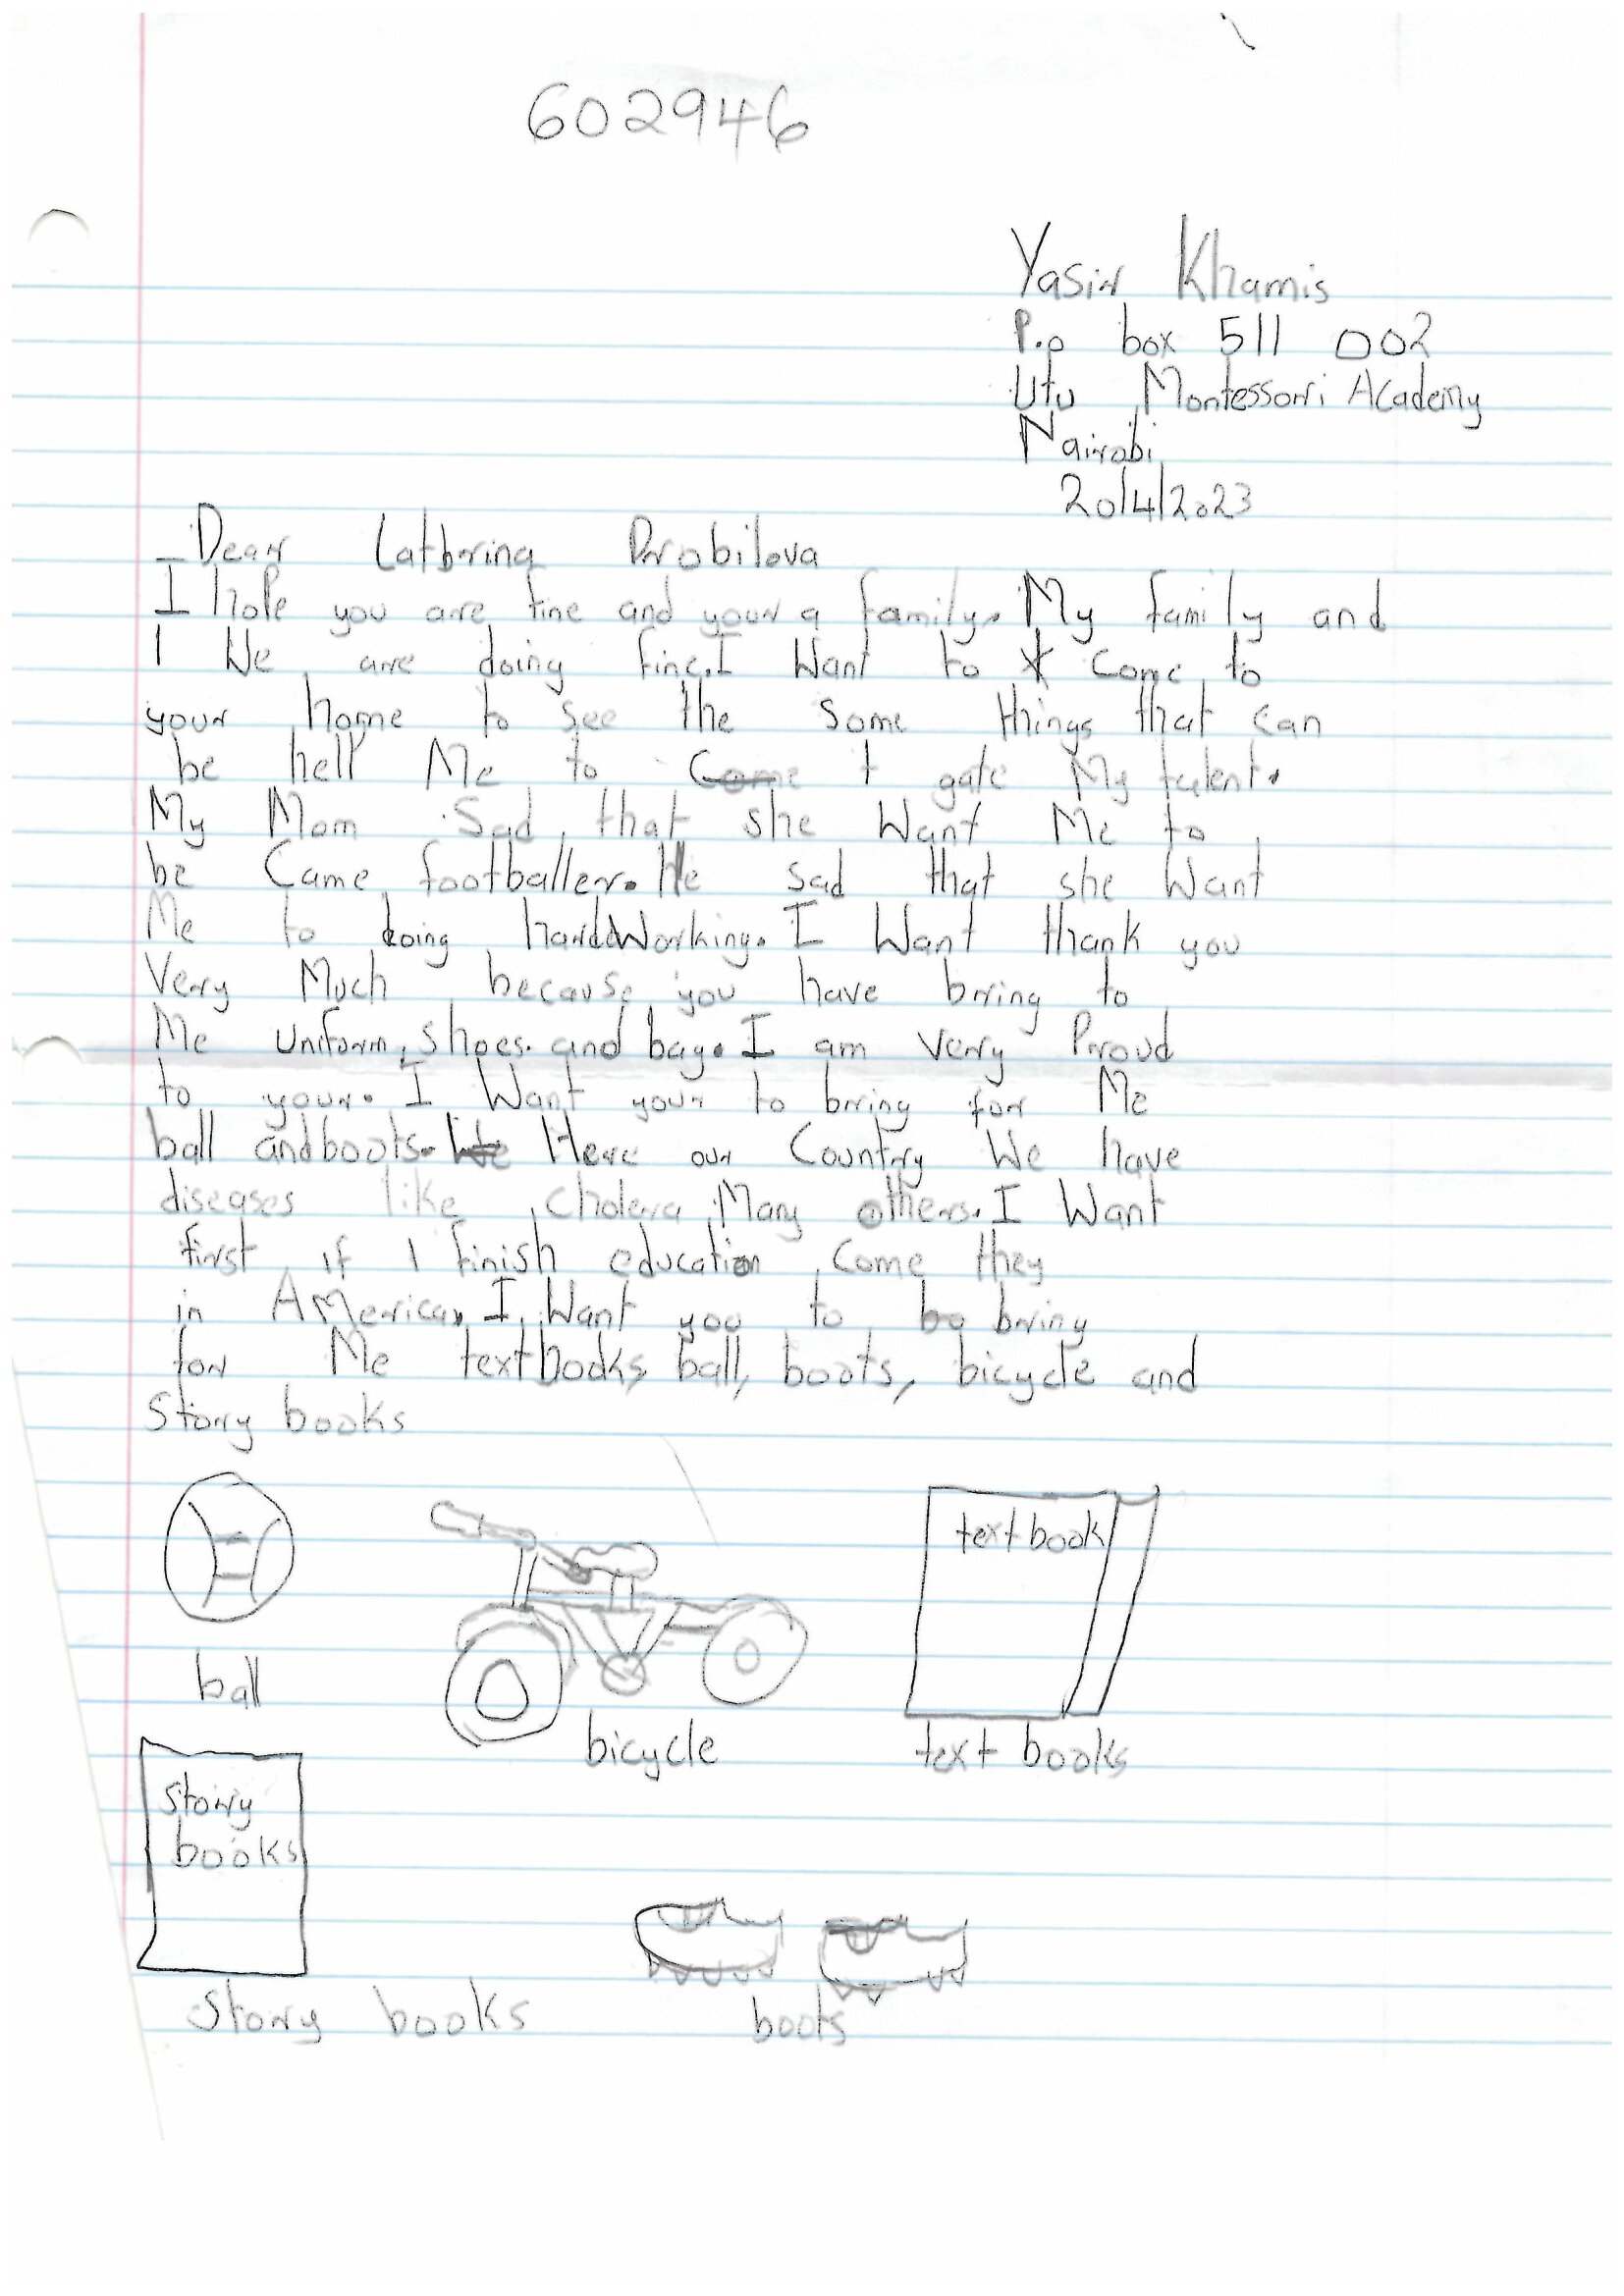 602946
Yasin Khamis
P.o box 511 002
Utu Montessori Academy
Nairobi
20/4/2023
Dear Catherina Probilova
I hope you are fine and your a family. My family and
I We are doing fine. I Want to Come to
your home to see the some things that can
be hell Me to Come t gate My talent.
My Mom Sad that she Want Me to
be Came footballer. He sad that she Want
Me to doing hardWorking. I Want thank you
Very Much because you have bring to
Me uniform, shoes. and bag. I am Very Proud
to your. I Want your to bring for Me
ball and boots. We Here our Country We have
diseases like cholera Many others. I Want
first if I finish education Come they
in AMerica, I Want you to bo bring
for Me textbooks, ball, boots, bicycle and
Story books
textbook
ball
bicycle
text books
Story
books
Story books
boots